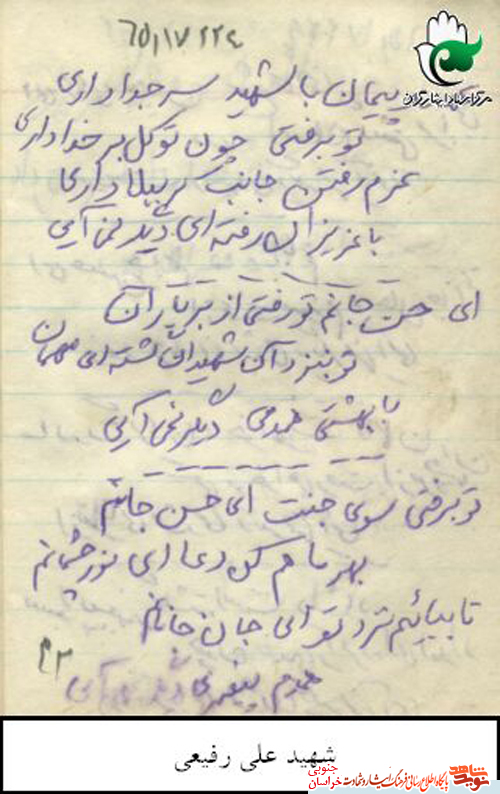 ۶۵٫۱۷۲۲۴
مرکز اسناد ایثارگران
پیمان با شهید سر جدا داری
تو برفتی چون توکل بر خدا داری
عزم رفتن جانب کربلا داری
با عزیزان رفته ای دیگر نمی آیی
ای حسن جانم تو رفتی از بر یاران
تو بنزد آن شهیدان گشته ای مهمان
با بهشتی همدمی دیگر نمی آیی
تو برفتی سوی جنت ای حسن جانم
بهر ما هم کن دعا ای نور چشمانم
تا بیائیم نزد تو ای جان جانانم
۴۳
همدم پیغمبری دیگر نمی آیی
شهید علی رفیعی
نوید شاهد
پایگاه اطلاع رسانی فرهنگ ایثار و شهادت
خراسان جنوبی